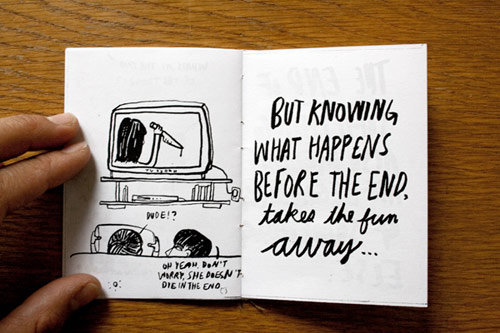 DUDE!?
OH YEAH, DON'T
WORRY, SHE DOESN'T
DIE IN THE END.
BUT KNOWING
WHAT HAPPENS
BEFORE THE END,
takes the fun
away...